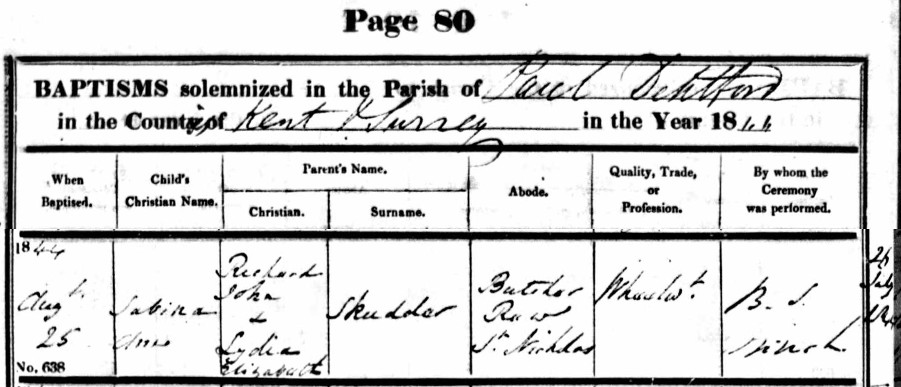 Page 80
BAPTISMS solemnized in the Parish of St Paul Deptford
in the Counties of Kent & Surrey in the Year 1844
When
Baptised.
Child's
Christian Name.
Parent's Name.
Christian.
Surname.
Abode.
Quality, Trade,
or
Profession.
By whom the
Ceremony
was performed.
1844
Augt
25
No. 638
Sabina
Ann
Richard
John
&
Lydia
Elizabeth
Skudder
Butcher
Row
St Nichlas
Wheelwt.
B. S.
Finch